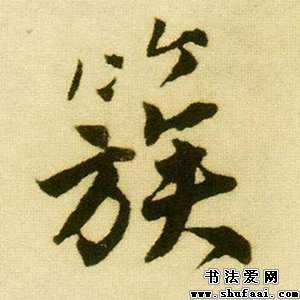 簇
书法爱网
www.shufaai.com